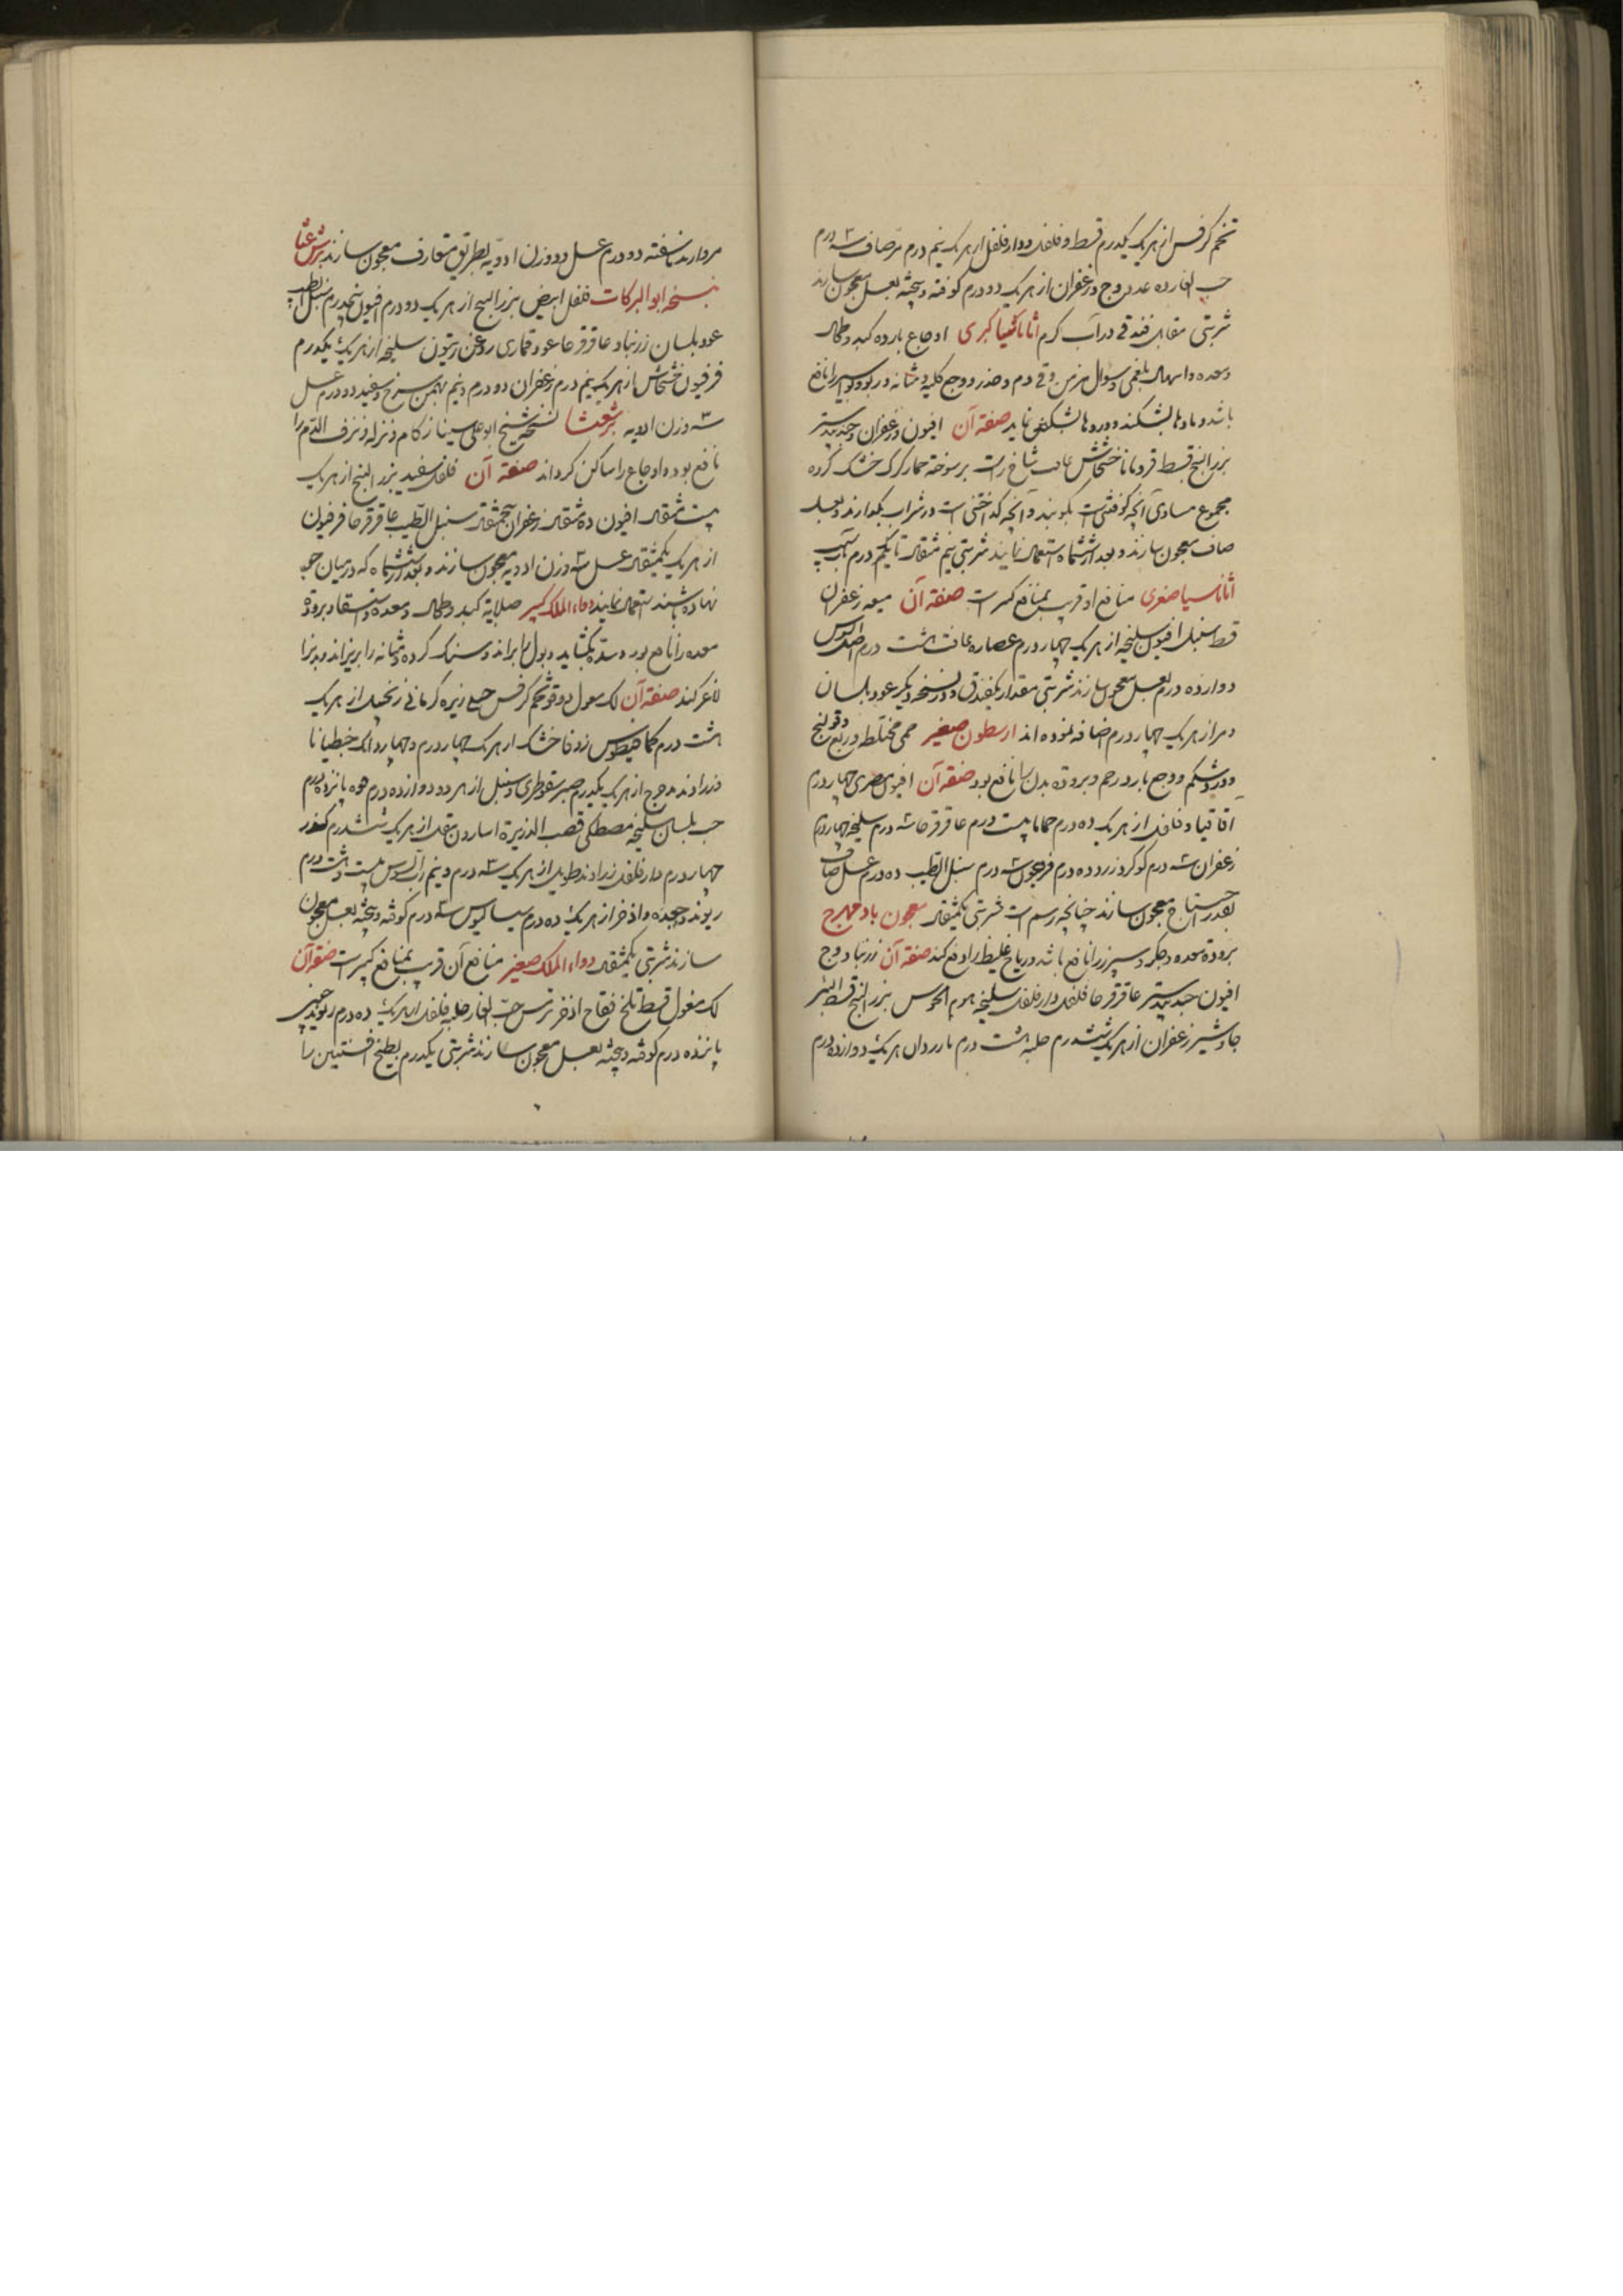 تخم کرفس از هر یک یکدرم قسط و فلفل و دارفلفل از هر یک نیم درم مرّ صاف سه درم
حب الغار ده عدد وج و زعفران از هر یک دو درم کوفته و بیخته بعسل معجون سازند
شربتی مقابل فندقی در آب کرم اثاناسیا کبری اوجاع بارده کبد و طحال
و معده و اسهال بلغمی و سعال مزمن و قی دم و خدر و وجع کلیه و مثانه و ربو و بواسیر را نافع
باشد و بادها بشکند و دردها بشکفی نماید صفة آن افیون و زعفران و جندبیدستر
بزر البنج قسط قردمانا خشخاش غافث شاخ راست بز سوخته جکر کرک خشک کرده
مجموع مساوی آنچه کوفتنی است بکوبند و آنچه کداختنی است در شراب بکدازند و بعسل
صاف معجون سازند و بعد از ششماه استعمال نمایند شربتی نیم مثقال تا یکدرم بآب
اثاناسیا صغری منافع او قریب بمنافع کبیر است صفة آن میعه زعفران
قسط سنبل افیون سلیخه از هر یک چهار درم عصاره غافث هشت درم اصل السوس
دوازده درم بعسل معجون سازند شربتی مقدار یکفندق و در نسخه دیکر عود بلسان
و مر از هر یک چهار درم اضافه نموده اند ارسطون صغیر حمی مختلط و ربع و قولنج
و درد شکم و وجع بارد رحم و برودة بدن را نافع بود صفة آن افیون مصری چهار درم
اقاقیا و فلفل از هر یک ده درم حماما بیست درم عاقرقرحا سه درم سلیخه چهار درم
زعفران سه درم کوکرد زرد ده درم فرفیون سه درم سنبل الطیب ده درم عسل صاف
بقدر احتیاج معجون سازند چنانچه رسم است شربتی یکمثقال معجون بادمهرج
برودة معده و جکر و سپرز را نافع باشد و ریاح غلیظ را دفع کند صفة آن زرنباد وج
افیون جندبیدستر عاقرقرحا فلفل دارفلفل سلیخه هوم المجوس بزر البنج قسط المر
جاوشیر زعفران از هر یک هشتدرم حلبه هشت درم مارردان هر یک دوازده درم
مروارید ناسفته دو درم عسل دو وزن ادویه بطریق متعارف معجون سازند برشعثا
بنسخه ابو البرکات فلفل ابیض بزر البنج از هر یک دو درم افیون پنجدرم سنبل الطیب
عود بلسان زرنباد عاقرقرحا عود قماری روغن زیتون سلیخه از هر یک یکدرم
فرفیون خشخاش از هر یک نیم درم زعفران دو درم و نیم بهمن سرخ و سفید دو درم عسل
سه وزن ادویه برشعثا نسخه شیخ ابو علی سینا زکام و نزله و نزف الدم را
نافع بود و اوجاع را ساکن کرداند صفة آن فلفل سفید بزر البنج از هر یک
بیست مثقال افیون ده مثقال زعفران پنجمثقال سنبل الطیب عاقرقرحا فرفیون
از هر یک یکمثقال عسل سه وزن ادویه معجون سازند و بعد از ششماه که در میان جو
نهاده باشند استعمال نمایند دواء الملک کبیر صلابة کبد و طحال و معده و استسقا و برودة
معده را نافع بود و سده بکشاید و بول را براند و سنک کرده و مثانه را بریزاند و بدن را
لاغر کند صفة آن لک مغسول دوقو تخم کرفس جبلی زیره کرمانی زنجبیل از هر یک
هشت درم کمافیطوس زوفا خشک از هر یک چهار درم و چهار دانک جنطیانا
و زراوند مدحرج از هر یک یکدرم صبر سقوطری و سنبل از هر دو دوازده درم فوه پانزده درم
حب بلسان سلیخه مصطکی قصب الذریرة اسارون مقل از هر یک ششدرم کندر
چهار درم دارفلفل زراوند طویل از هر یک سه درم و نیم رب السوس بیست و هشت درم
ریوند و جعده و اذخر از هر یک ده درم سیسالیوس سه درم کوفته و بیخته بعسل معجون
سازند شربتی یکمثقال دواء الملک صغیر منافع آن قریب بمنافع کبیر است صفة آن
لک مغسول قسط تلخ فقاح اذخر ترمس حب الغار حلبه فلفل از هر یک ده درم ریوند چینی
پانزده درم کوفته و بیخته بعسل معجون سازند شربتی یکدرم بطبیخ افسنتین را